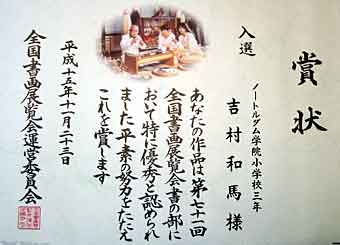 賞状
入選
ノートルダム学院小学校三年
吉村和馬様
あなたの作品は第七十一
全国書画展覧会書の部に
おいて特に優秀と認められ
ました平素の努力をたたえ
これを賞します
平成十五年十一月二十三日
全国書画展覧会運営委員会